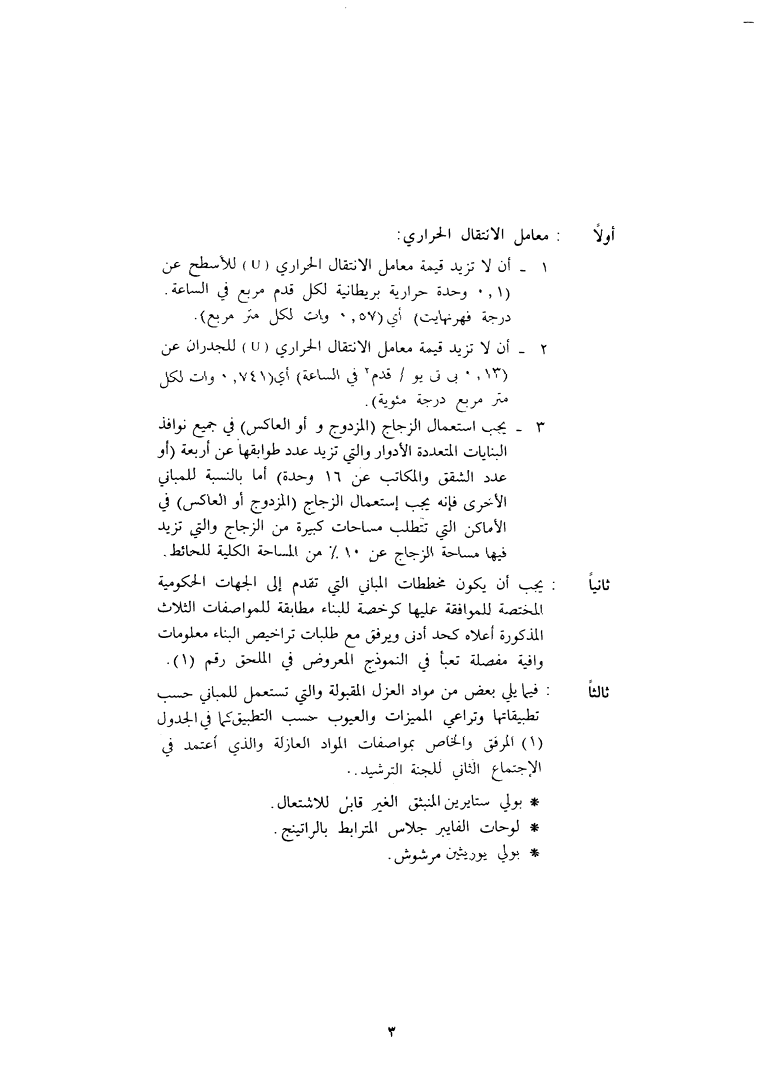 أولاً : معامل الانتقال الحراري:
١ - أن لا تزيد قيمة معامل الانتقال الحراري (U) للأسطح عن
(٠,١ وحدة حرارية بريطانية لكل قدم مربع في الساعة.
درجة فهرنهايت) أي (٠,٥٧ وات لكل متر مربع).
٢ - أن لا تزيد قيمة معامل الانتقال الحراري (U) للجدران عن
(٠,١٣ بي تي يو / قدم٢ في الساعة) أي(٠,٧٤١ وات لكل
متر مربع درجة مئوية).
٣ - يجب استعمال الزجاج (المزدوج و أو العاكس) في جميع نوافذ
البنايات المتعددة الأدوار والتي تزيد عدد طوابقها عن أربعة (أو
عدد الشقق والمكاتب عن ١٦ وحدة) أما بالنسبة للمباني
الأخرى فإنه يجب إستعمال الزجاج (المزدوج أو العاكس) في
الأماكن التي تتطلب مساحات كبيرة من الزجاج والتي تزيد
فيها مساحة الزجاج عن ١٠٪ من المساحة الكلية للحائط.
ثانياً : يجب أن يكون مخططات المباني التي تقدم إلى الجهات الحكومية
المختصة للموافقة عليها كرخصة للبناء مطابقة للمواصفات الثلاث
المذكورة أعلاه كحد أدنى ويرفق مع طلبات تراخيص البناء معلومات
وافية مفصلة تعبأ في النموذج المعروض في الملحق رقم (١).
ثالثاً : فيما يلي بعض من مواد العزل المقبولة والتي تستعمل للمباني حسب
تطبيقاتها وتراعي المميزات والعيوب حسب التطبيق كما في الجدول
(١) المرفق والخاص بمواصفات المواد العازلة والذي أعتمد في
الإجتماع الثاني للجنة الترشيد..
* بولي ستايرين المنبثق الغير قابل للاشتعال.
* لوحات الفايبر جلاس المترابط بالراتينج.
* بولي يوريثين مرشوش.
٣